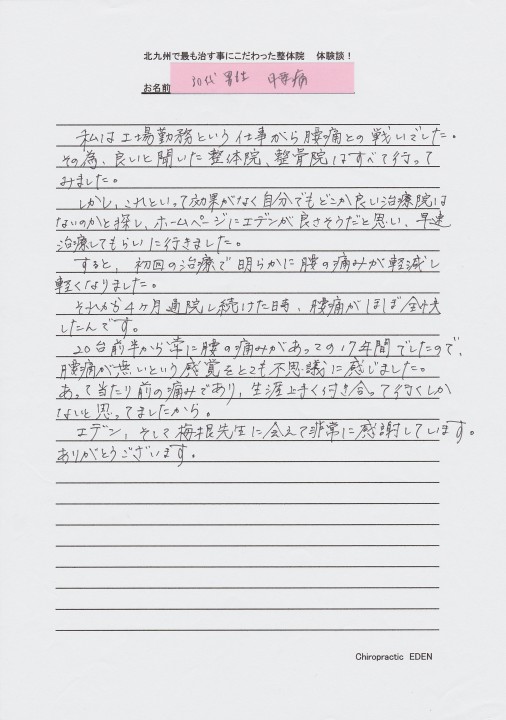 北九州で最も治す事にこだわった整体院 体験談！
お名前 30代 男性 腰痛
私は工場勤務という仕事がら腰痛との戦いでした。
その為、良いと聞いた整体院、整骨院はすべて行って
みました。
しかし、これといって効果がなく自分でもどこか良い治療院は
ないのかと探し、ホームページにエデンが良さそうだと思い、早速
治療してもらいに行きました。
すると、初回の治療で明らかに腰の痛みが軽減し
軽くなりました。
それから4ヶ月通院し続けた時、腰痛がほぼ全快
したんです。
20台前半から常に腰の痛みがあっての17年間でしたので、
腰痛が無いという感覚をとても不思議に感じました。
あって当たり前の痛みであり、生涯上手く付き合って行くしか
ないと思ってましたから。
エデン、そして梅根先生に会えて非常に感謝しています。
ありがとうございます。
Chiropractic EDEN